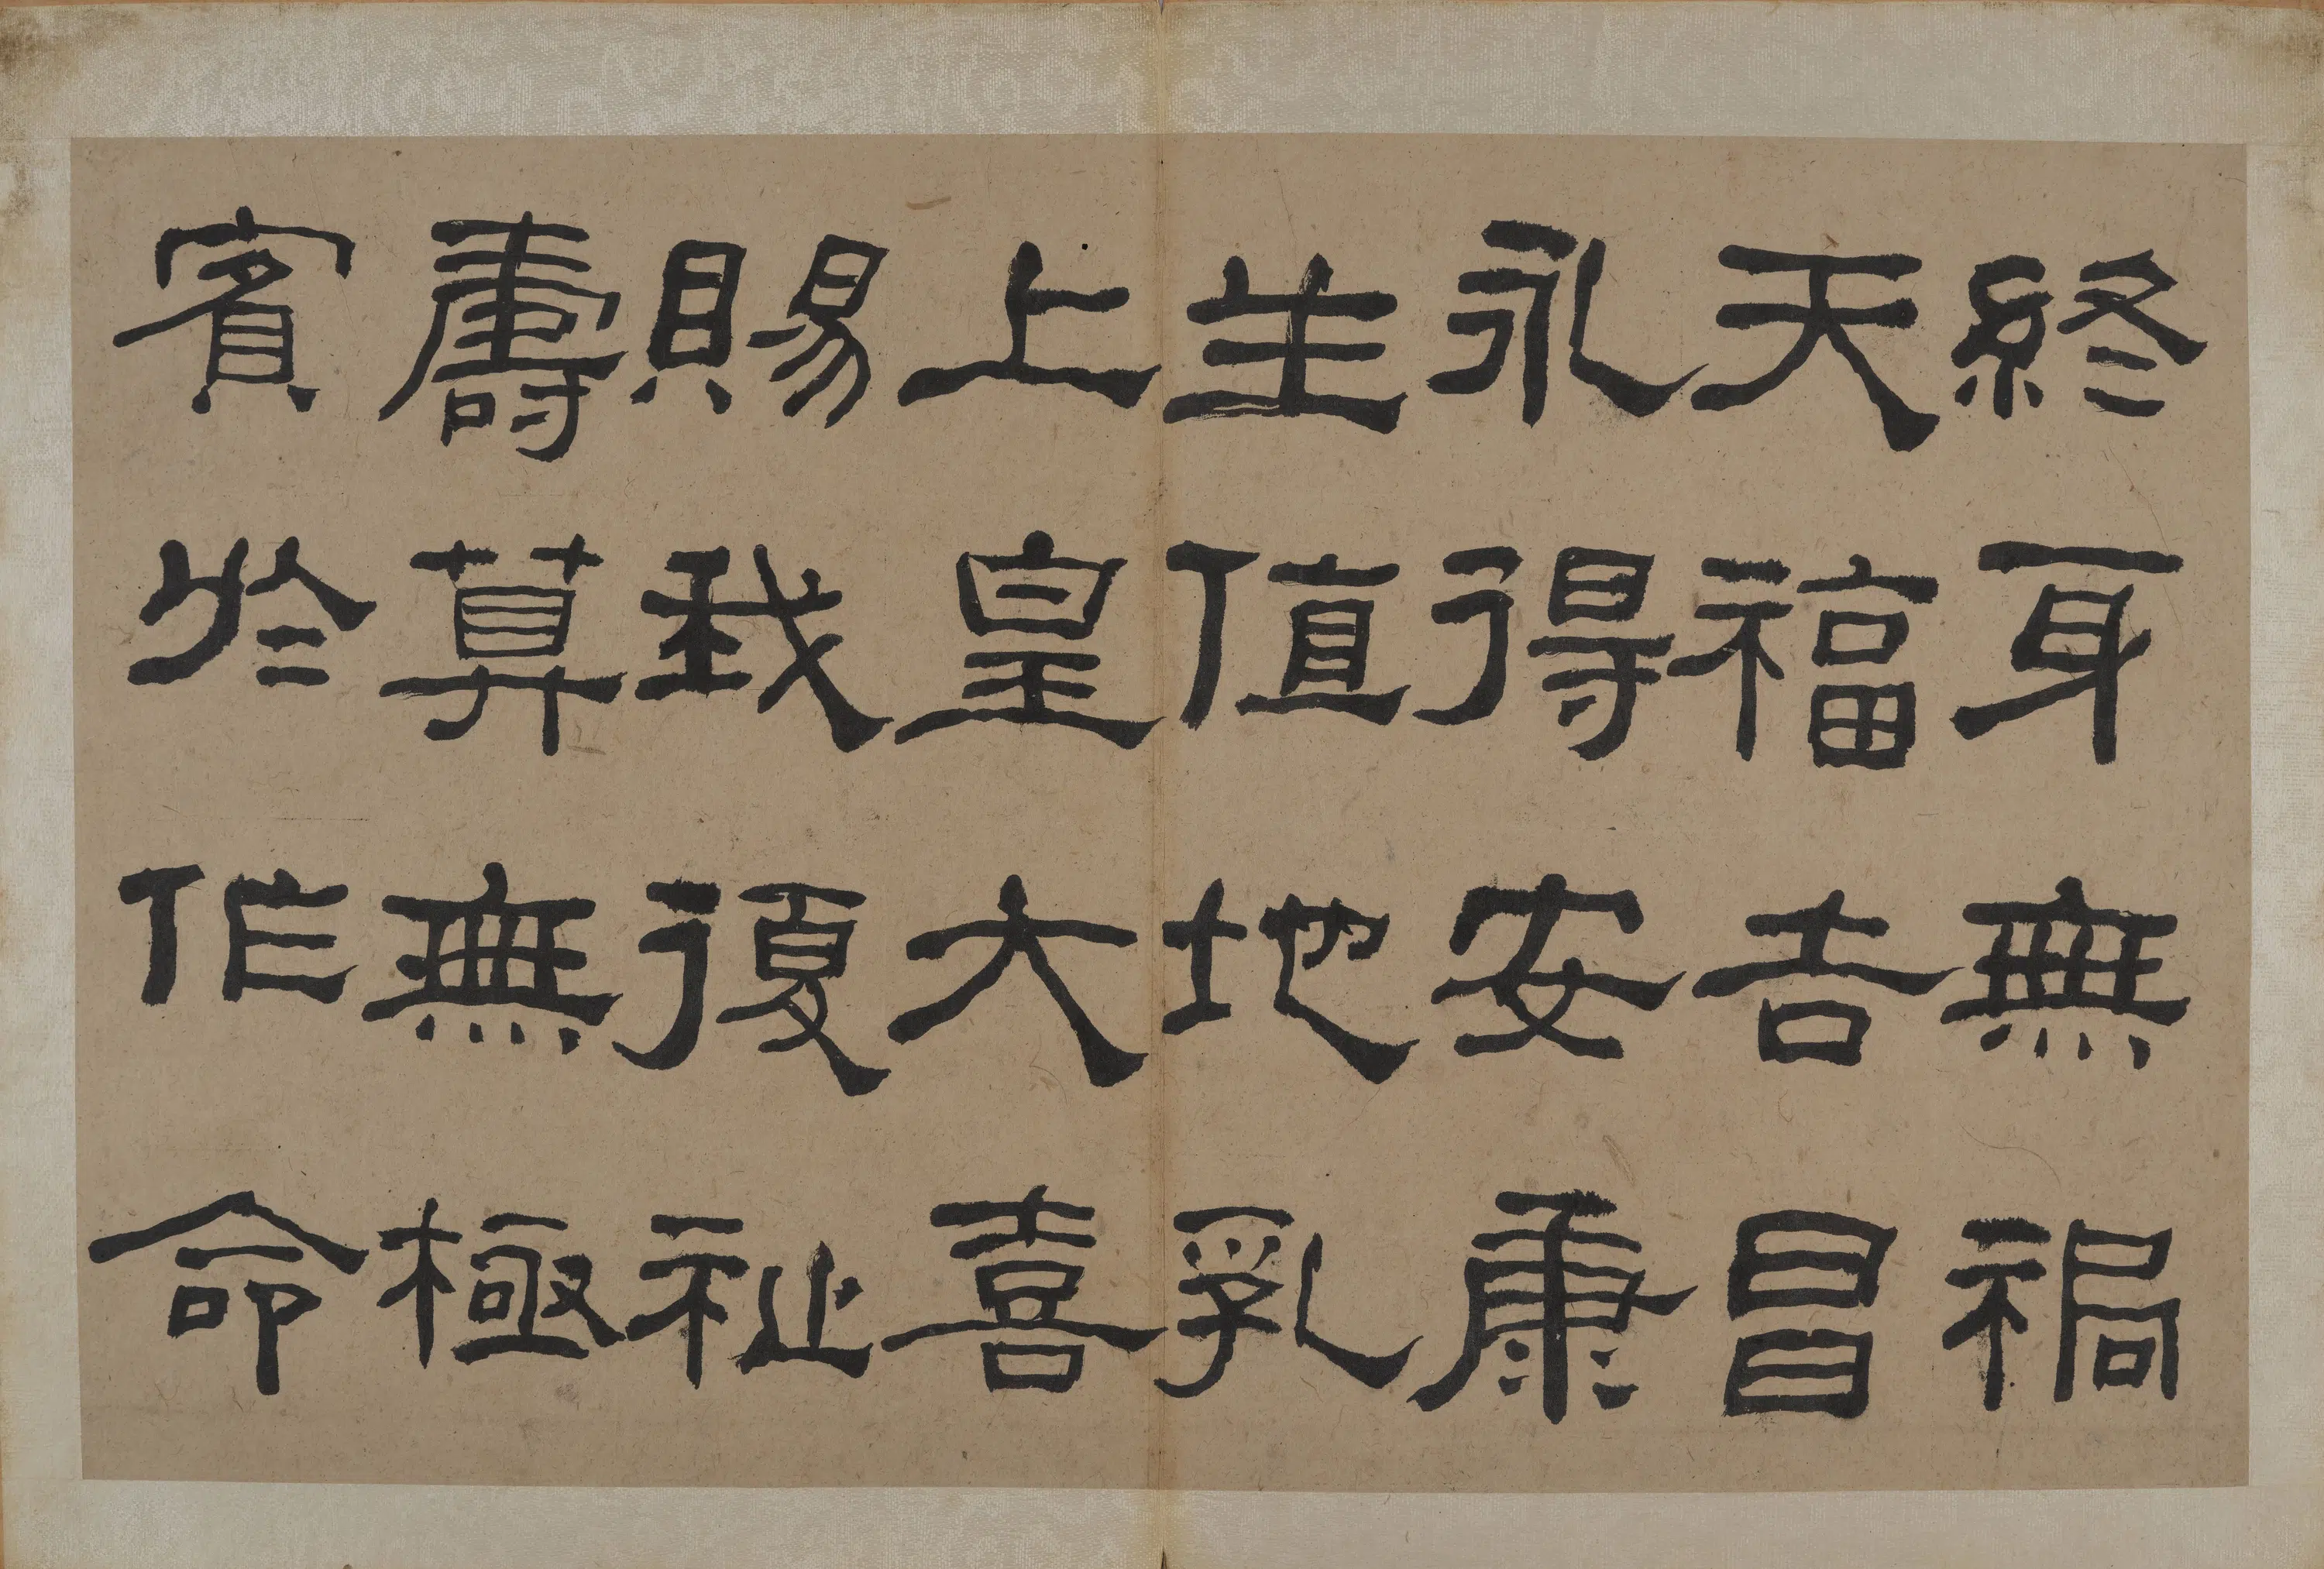 終身無禍
天福吉昌
永得安康
生值地乳
上皇大喜
賜我復祉
壽算無極
賓於作命